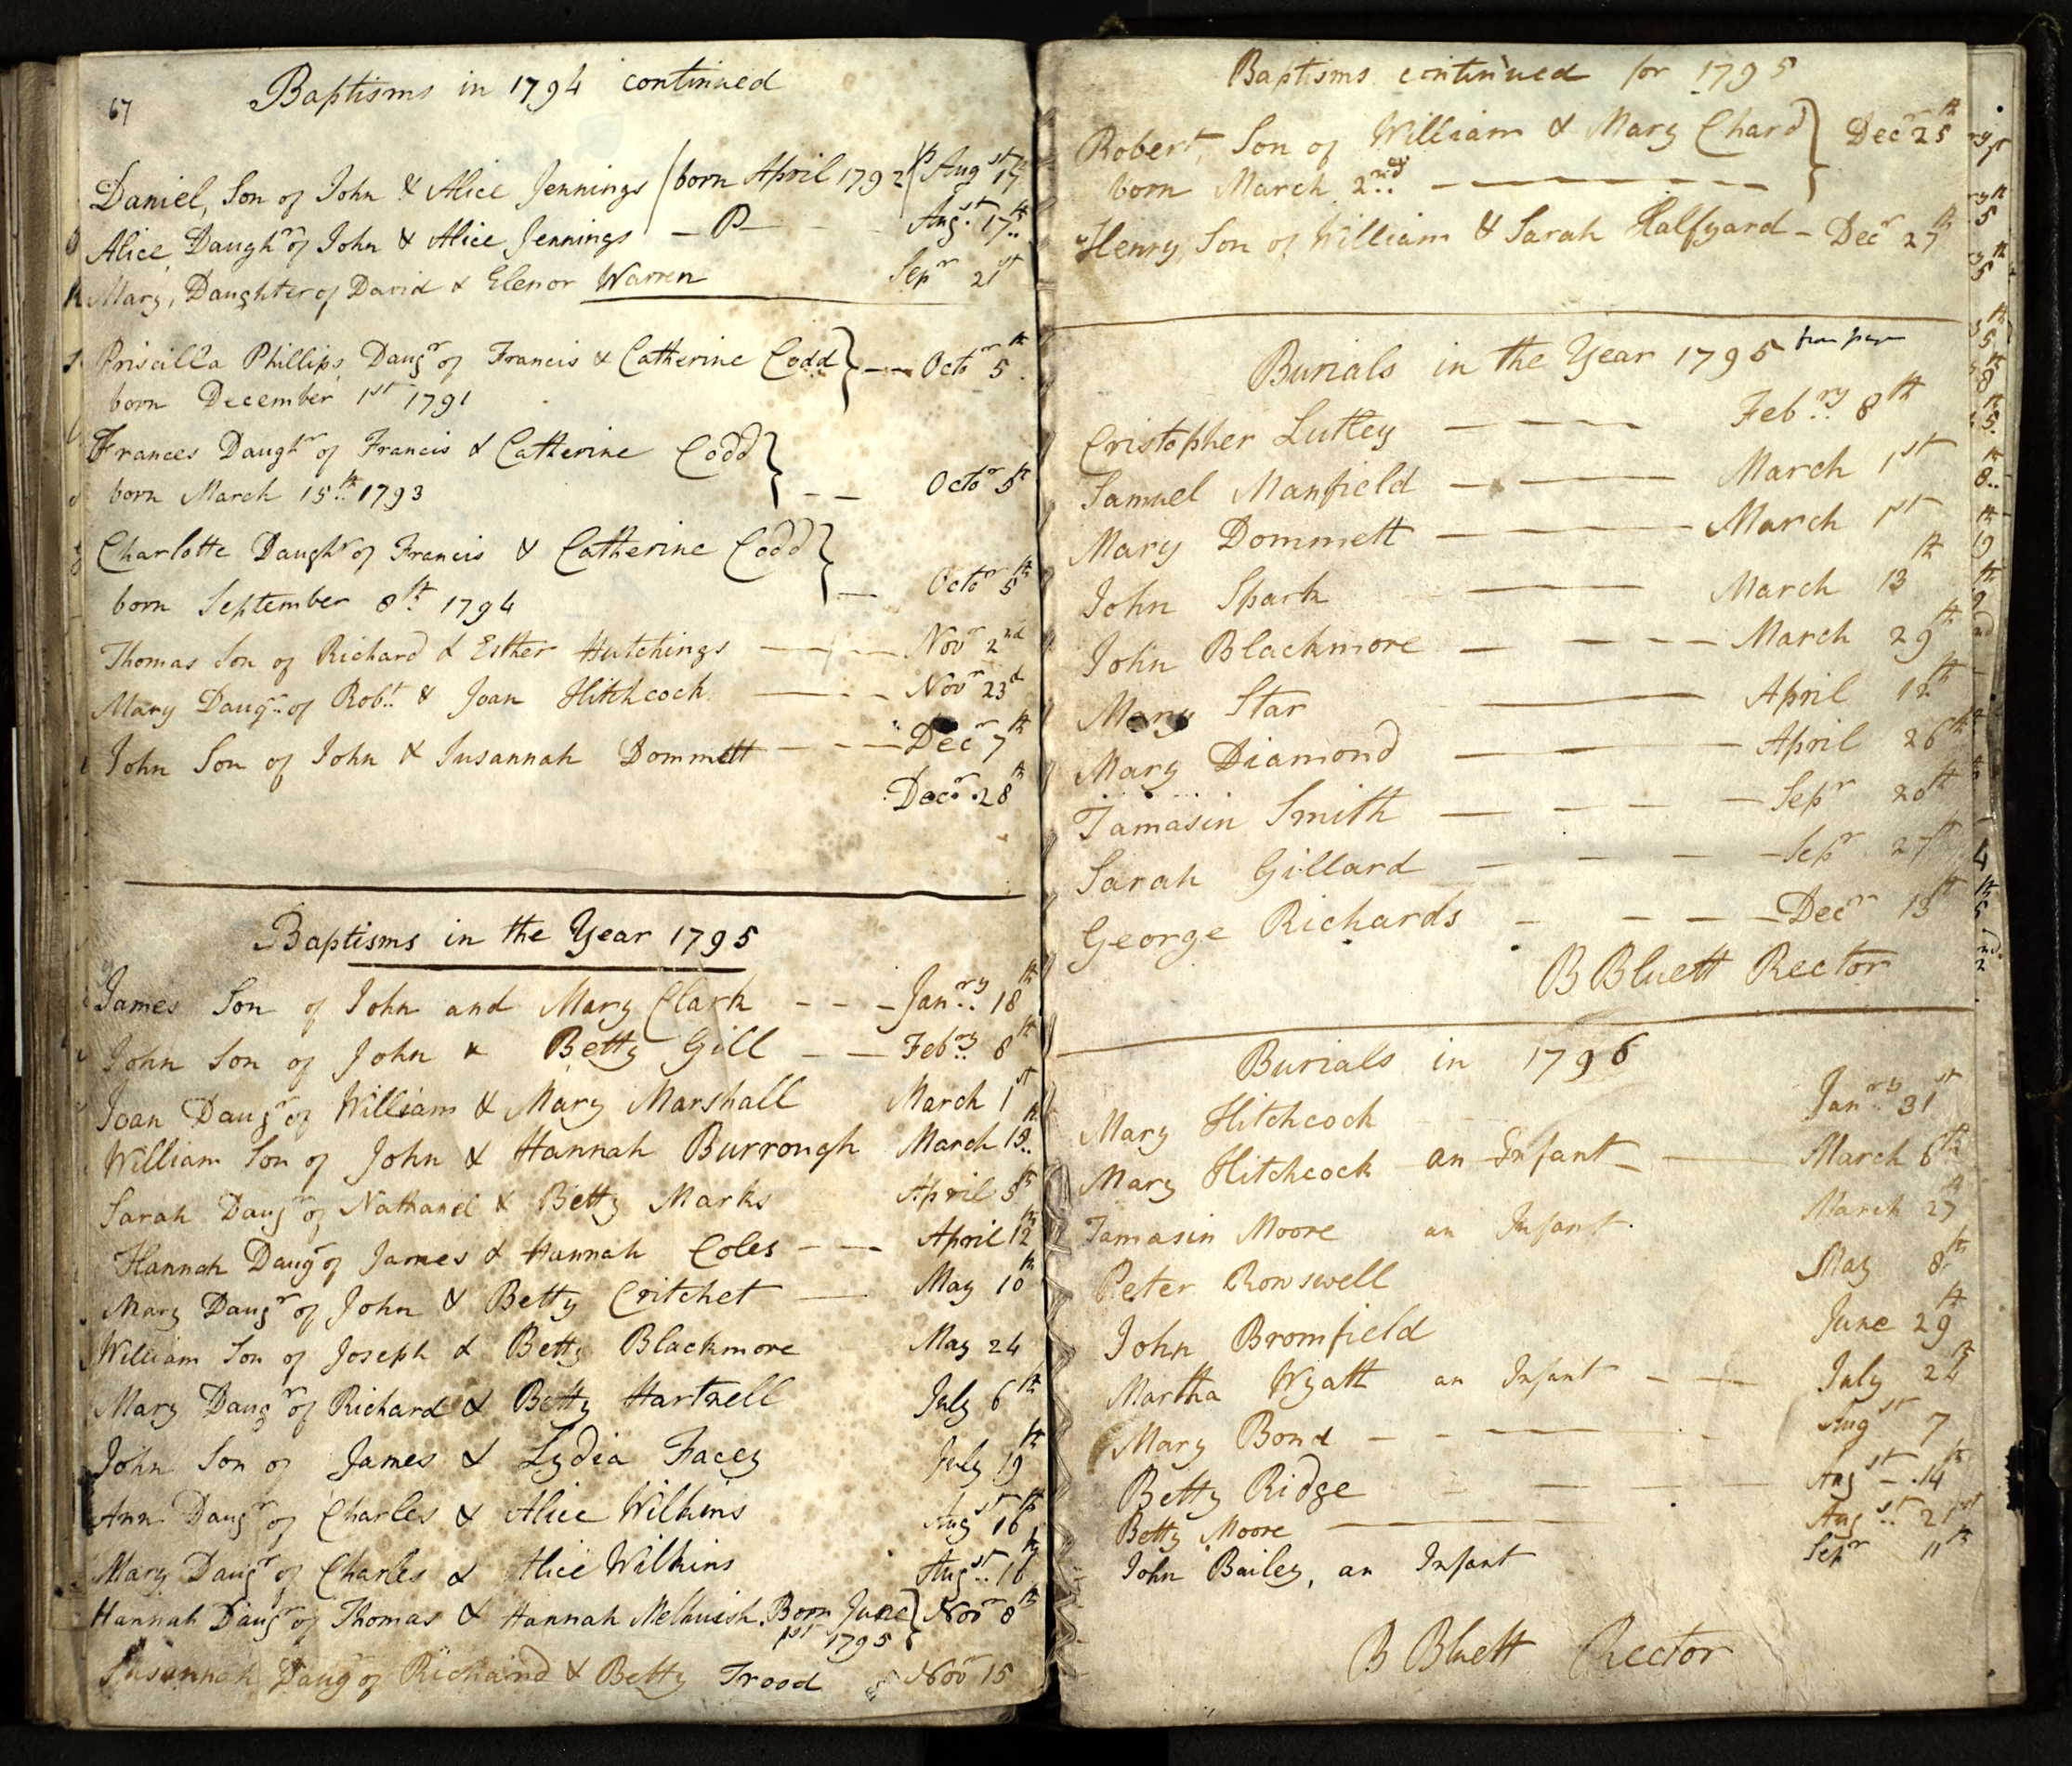 67
Baptisms in 1794 continued
Daniel, Son of John & Alice Jennings (born April 1792) P Augst 17th
Alice Daughr of John & Alice Jennings — P — Augst 17th
Mary, Daughter of David & Elenor Warren Sepr 21st
Priscilla Phillips, Daugr of Francis & Catherine Codd } — Octor 5th
born December 1st 1791
Frances Daughr of Francis & Catherine Codd }
born March 15th 1793 — — Octor 5th
Charlotte Daughr of Francis & Catherine Codd }
born September 8th 1794 — Octor 5th
Thomas Son of Richard & Esther Hutchings — — — Novr 2nd
Mary Daugr of Robt & Joan Hitchcock — — Novr 23d
John Son of John & Susannah Dommett — — — Decr 7th
Decr 28th
Baptisms in the Year 1795
James Son of John and Mary Clark — — — Janry 18th
John Son of John & Betty Gill — — Febry 8th
Joan Daugr of William & Mary Marshall March 1st
William Son of John & Hannah Burrough March 19th
Sarah Daugr of Nathanel & Betty Marks April 5th
Hannah Daugr of James & Hannah Coles — — April 12th
Mary Daugr of John & Betty Critchet — May 10th
William Son of Joseph & Betty Blackmore May 24
Mary Daugr of Richard & Betty Hartnell July 6th
John Son of James & Lydia Facey July 19th
Ann Daugr of Charles & Alice Wilkins Augst 16th
Mary Daugr of Charles & Alice Wilkins Augst 16th
Hannah Daugr of Thomas & Hannah Melhuish. Born June } Novr 8th
1st 1795
Susannah Daugr of Richard & Betty Trood Novr 15
Baptisms continued for 1795
Robert, Son of William & Mary Chard } Decr 25th
born March 2nd — — — — —
Henry, Son of William & Sarah Halfyard — Decr 27th
Burials in the Year 1795
Cristopher Luttey — — — Febry 8th
Samuel Manfield — — — March 1st
Mary Dommett — — — March 1st
John Spark — — March 13th
John Blackmore — — — — March 29th
Mary Star — — April 12th
Mary Diamond — — — April 26th
Tamasin Smith — — — — Sepr 20th
Sarah Gillard — — — — Sepr 27th
George Richards — — — — Decr 13th
B Bluett Rector
Burials in 1796
Mary Hitchcock Janry 31st
Mary Hitchcock an Infant — — March 6th
Tamasin Moore an Infant. March 27th
Peter Rowswell May 8th
John Bromfield June 29th
Martha Wyatt an Infant — — July 24th
Mary Bond — — — Augst 7
Betty Ridge — — — Augst — 14th
Betty Moore — — Augst 21st
John Bailey, an Infant Sepr 11th
B Bluett Rector